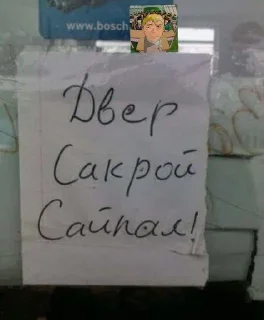 www.bosch
Двер
Сакрой
Сайпал!